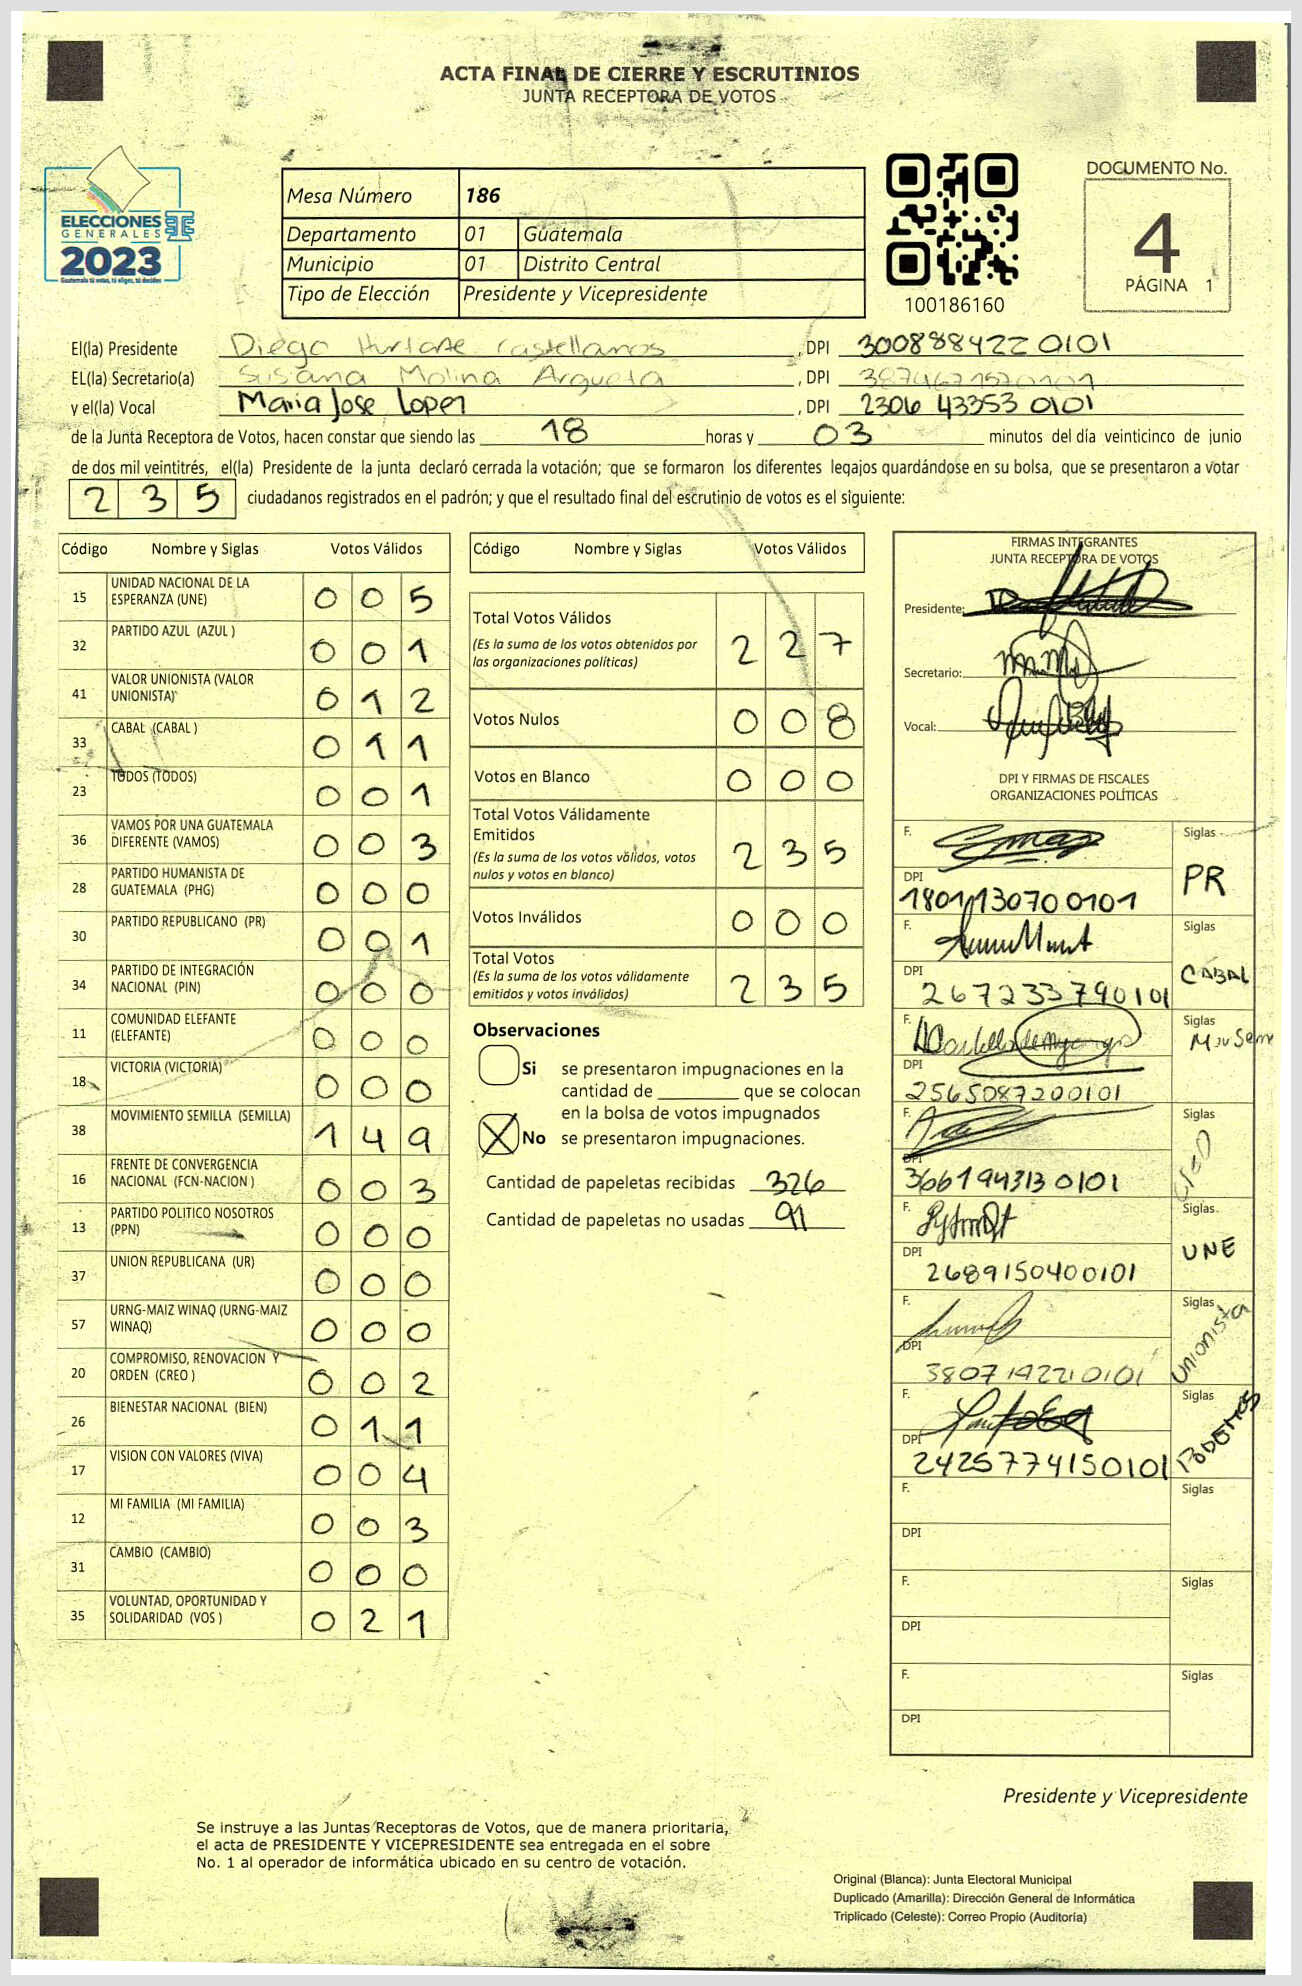 ACTA FINAL DE CIERRE Y ESCRUTINIOS
JUNTA RECEPTORA DE VOTOS
ELECCIONES
GENERALES
2023
Guatemala tú votas, tú eliges, tú decides
Mesa Número 186
Departamento 01 Guatemala
Municipio 01 Distrito Central
Tipo de Elección Presidente y Vicepresidente
100186160
DOCUMENTO No.
4
PÁGINA 1
El(la) Presidente Diego Hurtarte Castellanos, DPI 300888422 0101
EL(la) Secretario(a) Susana Molina Argueta, DPI 3874671570101
y el(la) Vocal Maria Jose Lopez, DPI 2306 43353 0101
de la Junta Receptora de Votos, hacen constar que siendo las 18 horas y 03 minutos del día veinticinco de junio
de dos mil veintitrés, el(la) Presidente de la junta declaró cerrada la votación; que se formaron los diferentes legajos guardándose en su bolsa, que se presentaron a votar
2 3 5 ciudadanos registrados en el padrón; y que el resultado final del escrutinio de votos es el siguiente:
Código Nombre y Siglas Votos Válidos
15 UNIDAD NACIONAL DE LA ESPERANZA (UNE) 0 0 5
32 PARTIDO AZUL (AZUL ) 0 0 1
41 VALOR UNIONISTA (VALOR UNIONISTA) 0 1 2
33 CABAL (CABAL ) 0 1 1
23 TODOS (TODOS) 0 0 1
36 VAMOS POR UNA GUATEMALA DIFERENTE (VAMOS) 0 0 3
28 PARTIDO HUMANISTA DE GUATEMALA (PHG) 0 0 0
30 PARTIDO REPUBLICANO (PR) 0 0 1
34 PARTIDO DE INTEGRACIÓN NACIONAL (PIN) 0 0 0
11 COMUNIDAD ELEFANTE (ELEFANTE) 0 0 0
18 VICTORIA (VICTORIA) 0 0 0
38 MOVIMIENTO SEMILLA (SEMILLA) 1 4 9
16 FRENTE DE CONVERGENCIA NACIONAL (FCN-NACION ) 0 0 3
13 PARTIDO POLITICO NOSOTROS (PPN) 0 0 0
37 UNION REPUBLICANA (UR) 0 0 0
57 URNG-MAIZ WINAQ (URNG-MAIZ WINAQ) 0 0 0
20 COMPROMISO, RENOVACION Y ORDEN (CREO ) 0 0 2
26 BIENESTAR NACIONAL (BIEN) 0 1 1
17 VISION CON VALORES (VIVA) 0 0 4
12 MI FAMILIA (MI FAMILIA) 0 0 3
31 CAMBIO (CAMBIO) 0 0 0
35 VOLUNTAD, OPORTUNIDAD Y SOLIDARIDAD (VOS ) 0 2 1
Código Nombre y Siglas Votos Válidos
Total Votos Válidos 2 2 7
(Es la suma de los votos obtenidos por
las organizaciones políticas)
Votos Nulos 0 0 8
Votos en Blanco 0 0 0
Total Votos Válidamente
Emitidos 2 3 5
(Es la suma de los votos válidos, votos
nulos y votos en blanco)
Votos Inválidos 0 0 0
Total Votos 2 3 5
(Es la suma de los votos válidamente
emitidos y votos inválidos)
Observaciones
Si se presentaron impugnaciones en la
cantidad de ________ que se colocan
en la bolsa de votos impugnados
X No se presentaron impugnaciones.
Cantidad de papeletas recibidas 326
Cantidad de papeletas no usadas 91
FIRMAS INTEGRANTES
JUNTA RECEPTORA DE VOTOS
Presidente:
Secretario:
Vocal:
DPI Y FIRMAS DE FISCALES
ORGANIZACIONES POLÍTICAS
F. Siglas PR
DPI 1801130700101
F. Siglas CABAL
DPI 267233790101
F. Siglas
DPI 2565087200101
F. Siglas CREO
DPI 366194313 0101
F. Siglas UNE
DPI 2689150400101
F. Siglas Unionista
DPI 3807192210101
F. Siglas PODEMOS
DPI 2425774150101
F. Siglas
DPI
F. Siglas
DPI
F. Siglas
DPI
Presidente y Vicepresidente
Se instruye a las Juntas Receptoras de Votos, que de manera prioritaria,
el acta de PRESIDENTE Y VICEPRESIDENTE sea entregada en el sobre
No. 1 al operador de informática ubicado en su centro de votación.
Original (Blanca): Junta Electoral Municipal
Duplicado (Amarilla): Dirección General de Informática
Triplicado (Celeste): Correo Propio (Auditoría)